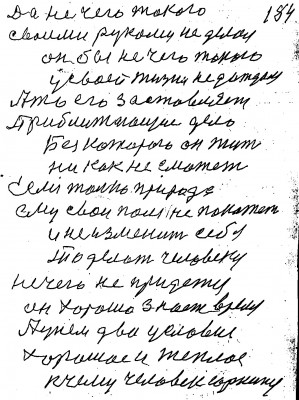 Да не чего такого 184
своими руками не делал
он бы не чего такого
у своей жизни не дождал
Ать его заставляет
Приближающие дело
Без которого он жит
ни как не сможет
Если только природа
ему свои пол не покажет
и не изменит себя
То делат человеку
нечего не придету
он хорошо знает время
Путем два условие
Хорошае и теплое
к чему человек